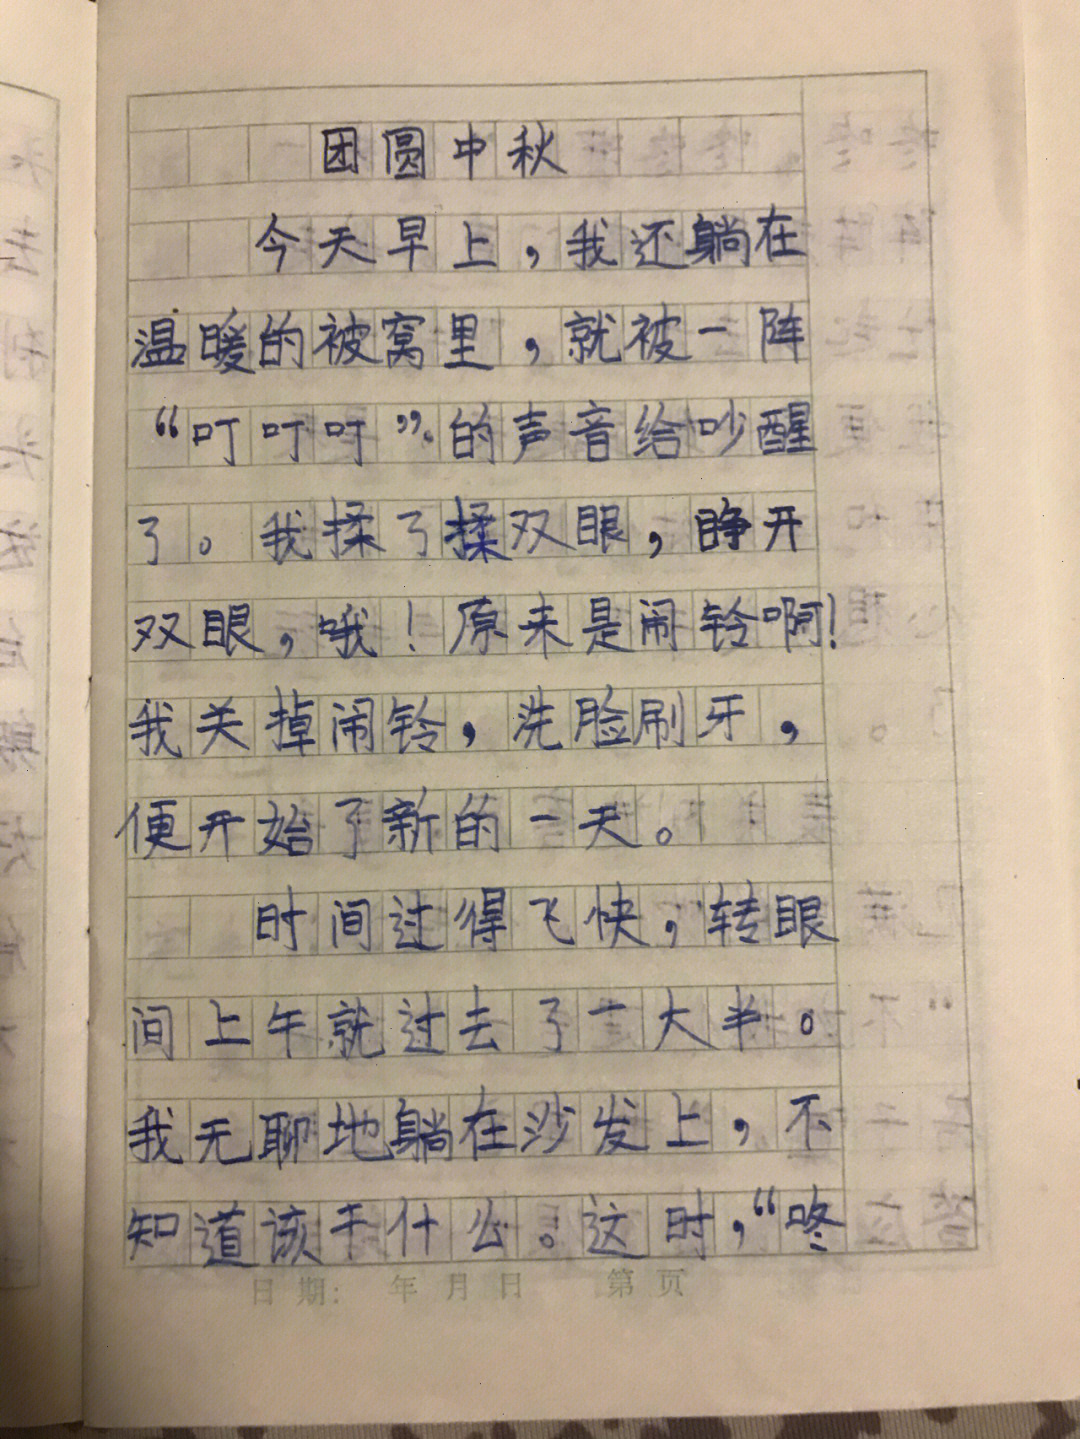 团圆中秋
今天早上，我还躺在
温暖的被窝里，就被一阵
“叮叮叮”的声音给吵醒
了。我揉了揉双眼，睁开
双眼，哦！原来是闹铃啊！
我关掉闹铃，洗脸刷牙，
便开始了新的一天。
时间过得飞快，转眼
间上午就过去了一大半。
我无聊地躺在沙发上，不
知道该干什么。这时，“咚
日期： 年 月 日 第 页